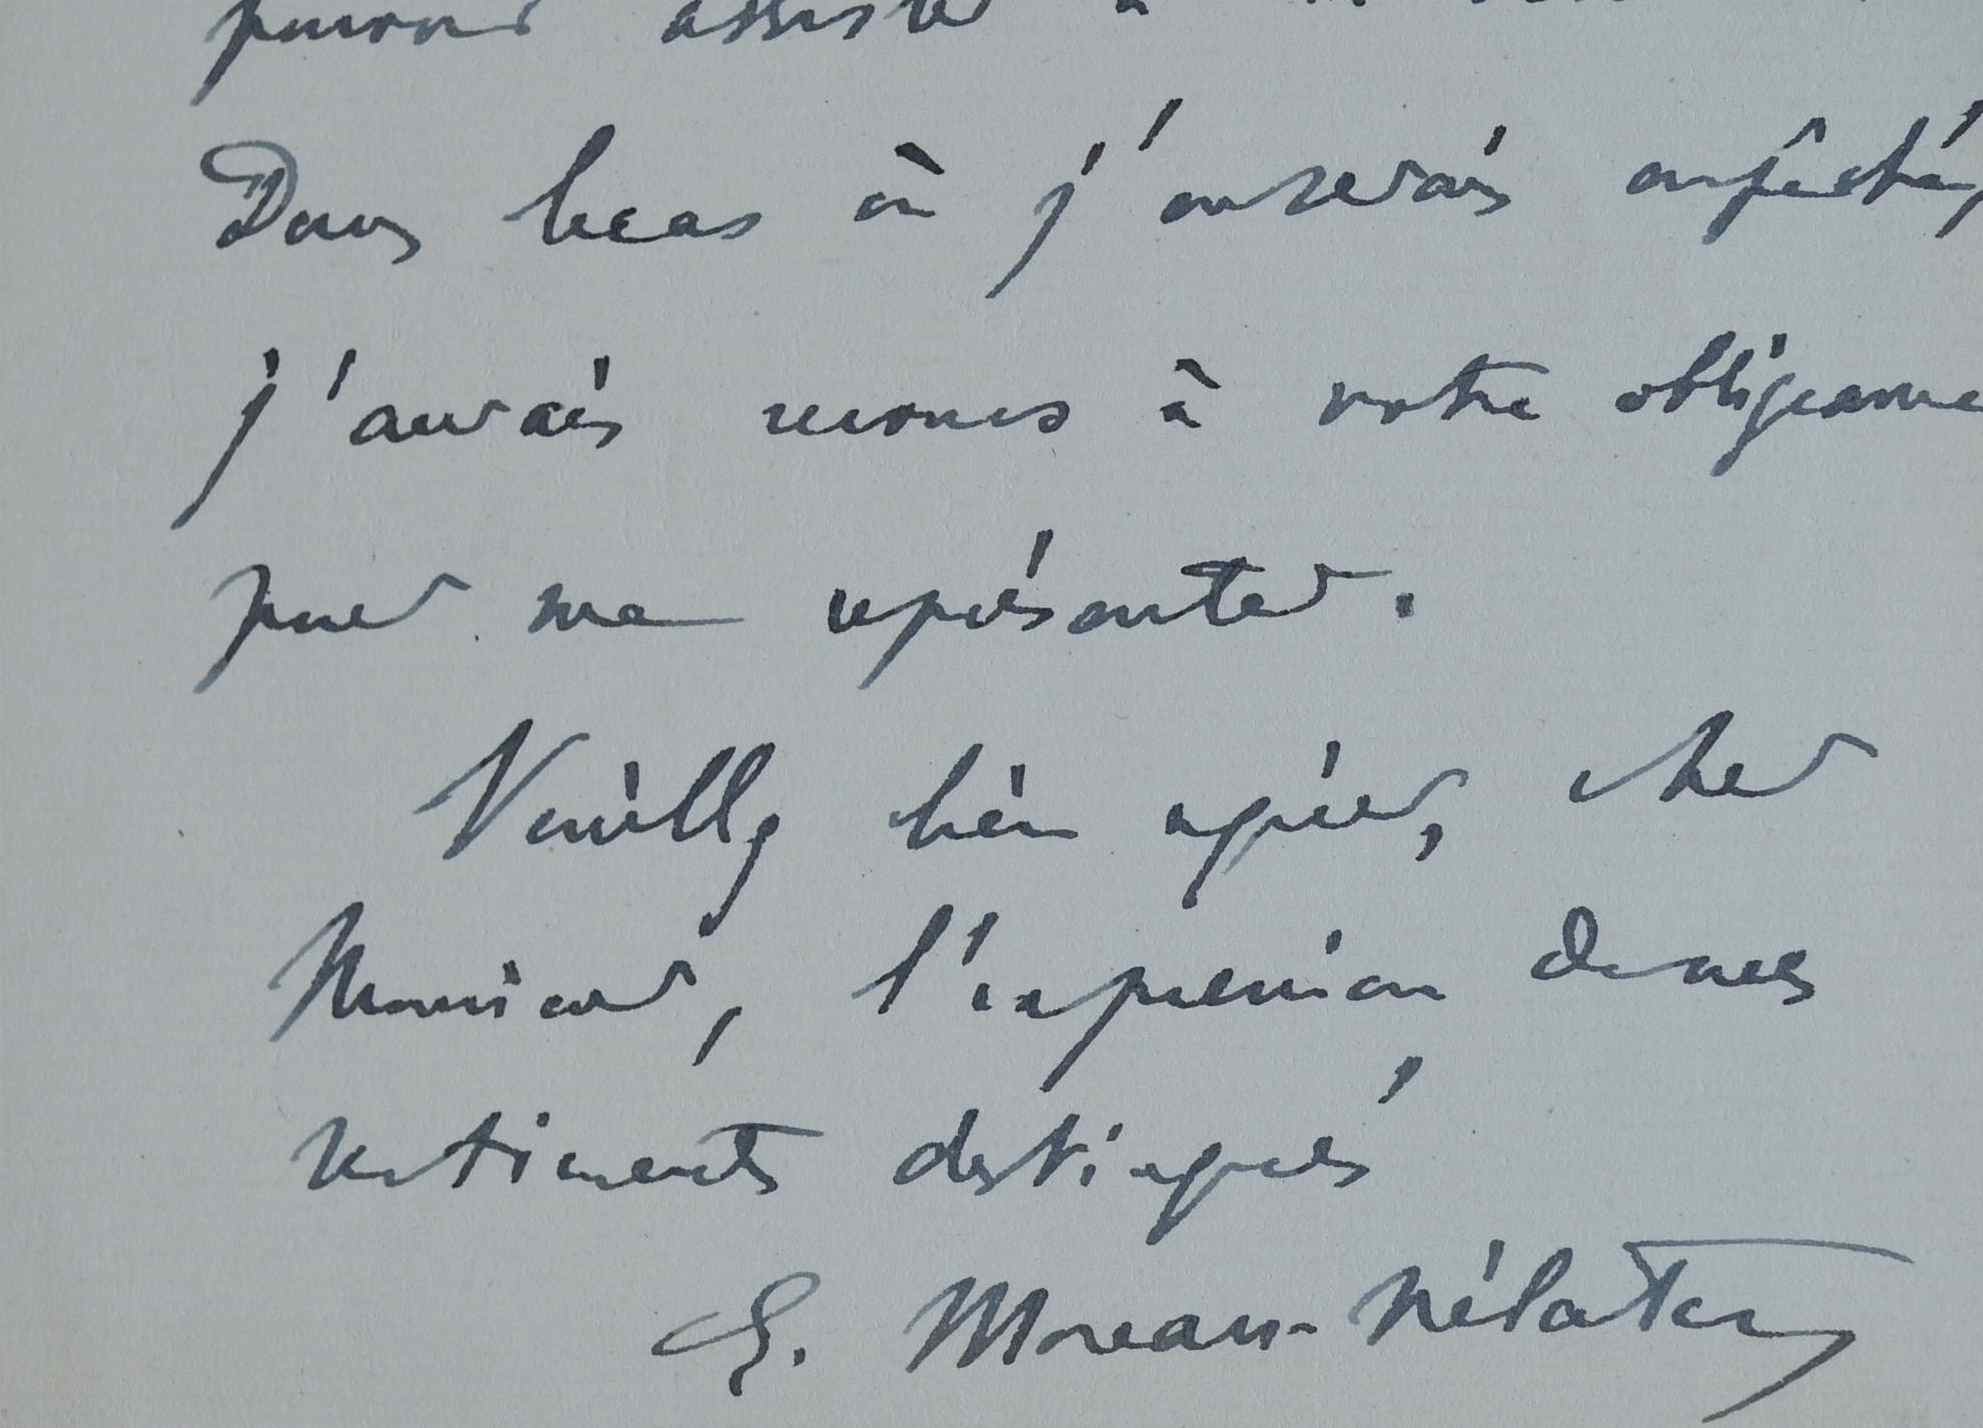 pouvoir assister à la
Dans le cas où j'en serais empêché,
j'aurais recours à votre obligeance
pour me représenter.
Veuillez bien agréer, cher
Monsieur, l'expression de mes
sentiments distingués
E. Moreau-Nélaton